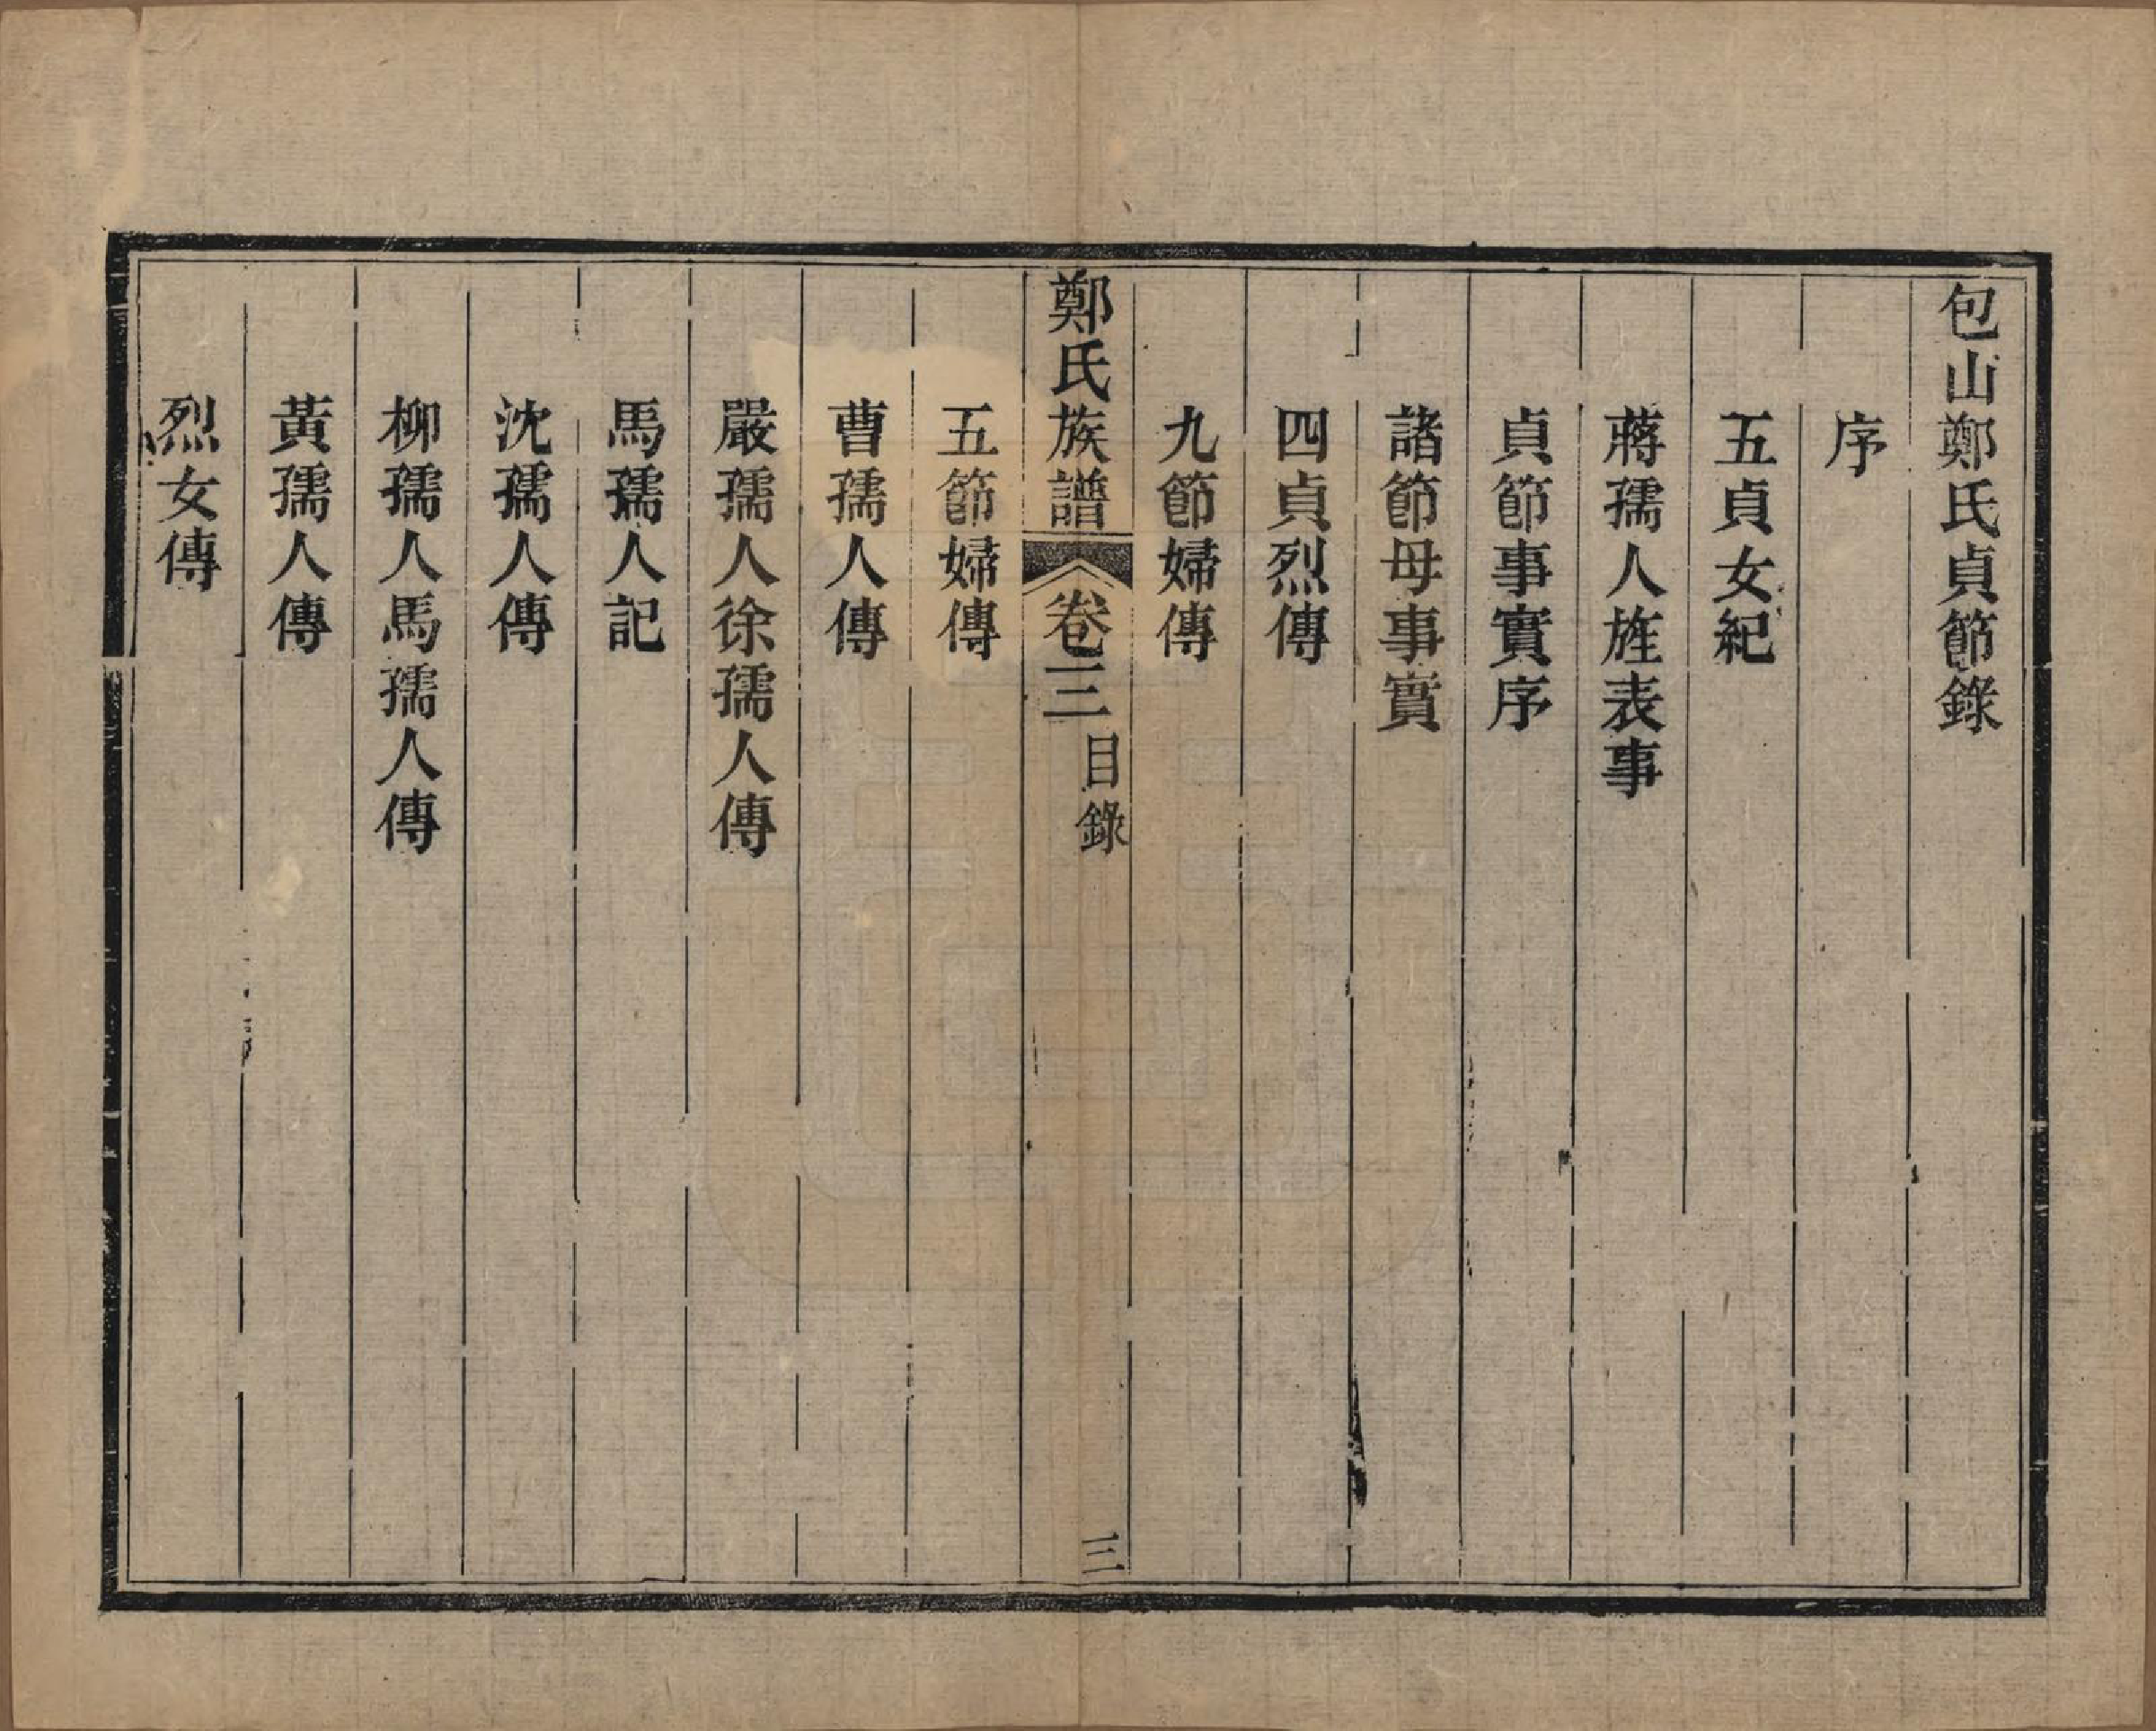 包山鄭氏貞節錄
序
五貞女紀
蔣孺人旌表事
貞節事實序
諸節母事實
四貞烈傳
九節婦傳
鄭氏族譜 卷三 目錄 三
五節婦傳
曹孺人傳
嚴孺人徐孺人傳
馬孺人記
沈孺人傳
柳孺人馬孺人傳
黃孺人傳
烈女傳